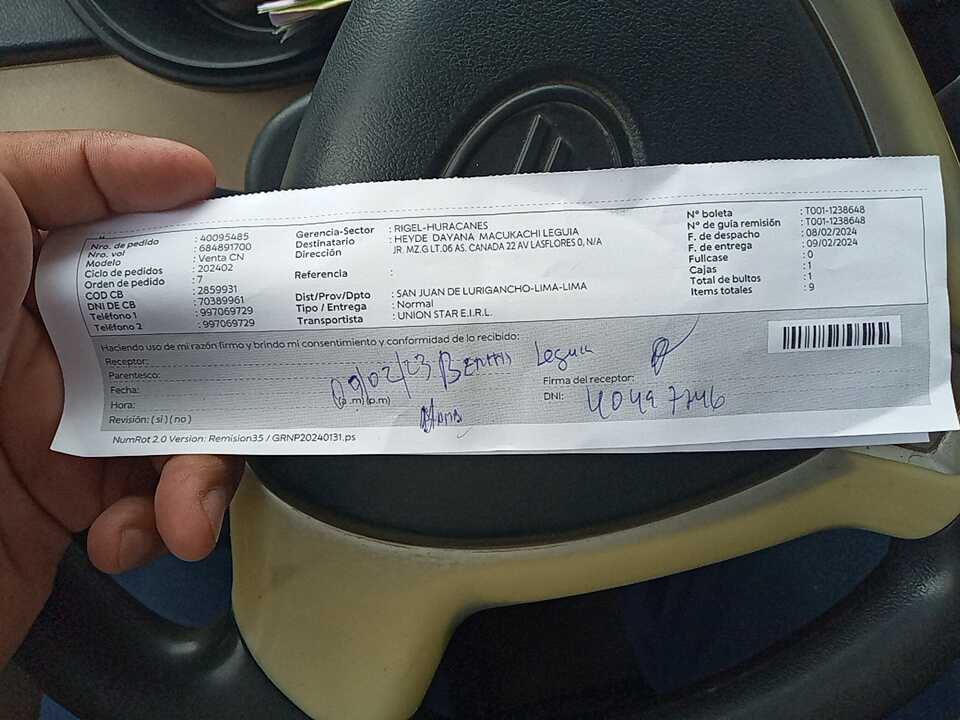 Nro. de pedido : 40095485
Nro. vol : 684891700
Modelo : Venta CN
Ciclo de pedidos : 202402
Orden de pedido : 7
COD CB : 2859931
DNI DE CB : 70389961
Teléfono 1 : 997069729
Teléfono 2 : 997069729
Gerencia-Sector : RIGEL-HURACANES
Destinatario : HEYDE DAYANA MACUKACHI LEGUIA
Dirección JR. MZ.G LT.06 AS. CANADA 22 AV LASFLORES 0, N/A
Referencia :
Dist/Prov/Dpto : SAN JUAN DE LURIGANCHO-LIMA-LIMA
Tipo / Entrega : Normal
Transportista : UNION STAR E.I.R.L.
N° boleta : T001-1238648
N° de guia remisión : T001-1238648
F. de despacho : 08/02/2024
F. de entrega : 09/02/2024
Fullcase : 0
Cajas : 1
Total de bultos : 1
Items totales : 9
Haciendo uso de mi razón firmo y brindo mi consentimiento y conformidad de lo recibido:
Receptor:
Parentesco:
Fecha: 09/02/23 Leguia
Hora: (a.m)(p.m)
Revisión: ( si ) ( no )
Firma del receptor:
DNI:
NumRot 2.0 Version: Remision35 / GRNP20240131.ps